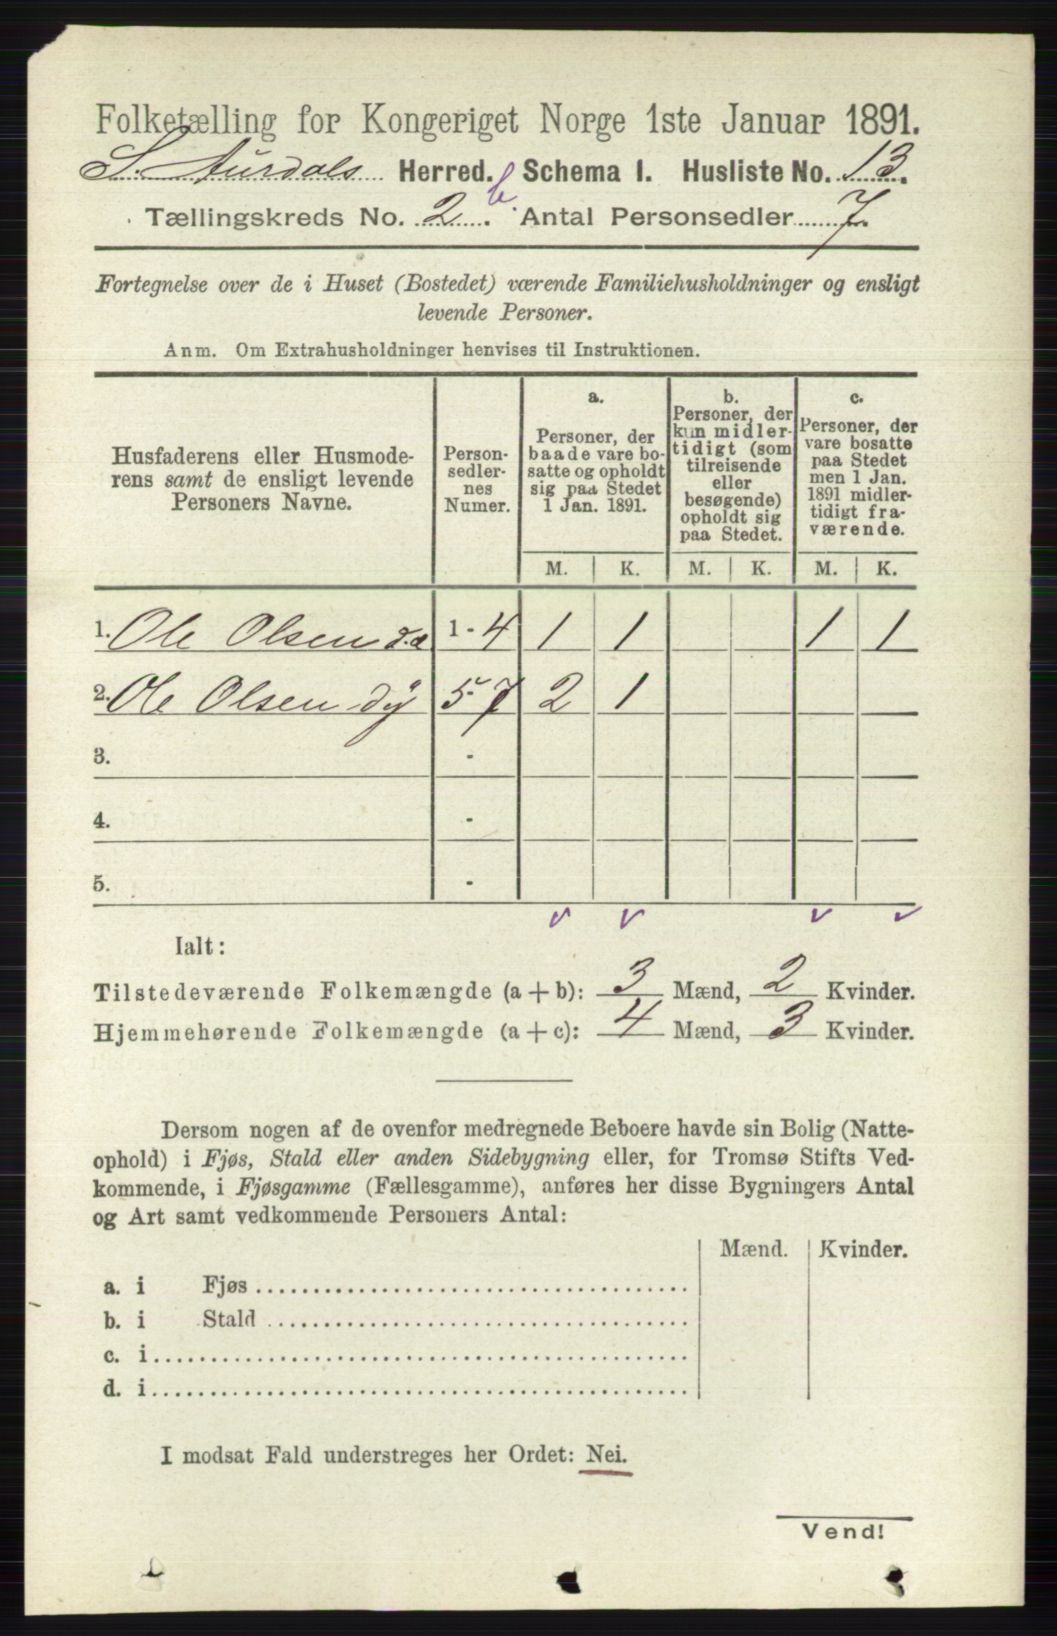 Folketælling for Kongeriget Norge 1ste Januar 1891.
S. Aurdals Herred. Schema 1. Husliste No. 13.
Tællingskreds No. 2 b. Antal Personsedler 7.
Fortegnelse over de i Huset (Bostedet) værende Familiehusholdninger og ensligt
levende Personer.
Anm. Om Extrahusholdninger henvises til Instruktionen.
Husfaderens eller Husmode-
rens samt de ensligt levende
Personers Navne.
Person-
sedler-
nes
Numer.
a.
Personer, der
baade vare bo-
satte og opholdt
sig paa Stedet
1 Jan. 1891.
b.
Personer, der
kun midler-
tidigt (som
tilreisende
eller
besøgende)
opholdt sig
paa Stedet.
c.
Personer, der
vare bosatte
paa Stedet
men 1 Jan.
1891 midler-
tidigt fra-
værende.
M. K. M. K. M. K.
1. Ole Olsen 1 - 4 1 1 1 1
2. Ole Olsen dy 5 - 7 2 1
3. -
4. -
5. -
Ialt:
Tilstedeværende Folkemængde (a + b): 3 Mænd, 2 Kvinder.
Hjemmehørende Folkemængde (a + c): 4 Mænd, 3 Kvinder.
Dersom nogen af de ovenfor medregnede Beboere havde sin Bolig (Natte-
ophold) i Fjøs, Stald eller anden Sidebygning eller, for Tromsø Stifts Ved-
kommende, i Fjøsgamme (Fællesgamme), anføres her disse Bygningers Antal
og Art samt vedkommende Personers Antal:
Mænd. Kvinder.
a. i Fjøs
b. i Stald
c. i
d. i
I modsat Fald understreges her Ordet: Nei.
Vend!